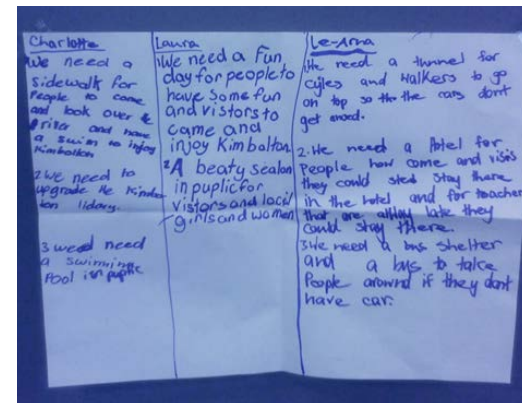 Charlotte
We need a
sidewalk for
People to come
and look over
river and have
a swim to injoy
Kimbolton
2 we need to
upgrade the Kinder
ton libary.
3 weed need
a swimming
Pool in puplic
Laura
1 We need a Fun
day for people to
have some fun
and vistors to
came and
injoy Kimbolton.
2 A beaty sealon
in puplic for
vistors and local
girls and women
Le-Arna
1. We need a tunnel for
Cyles and Walkers to go
on top so the the cars dont
get
2. We need a Hotel for
People how come and visis
they could sted stay there
in the hotel and for teacher
that are allway late they
could stay there.
3 We need a bus shelter
and a bus to take
People around if they dont
have car.